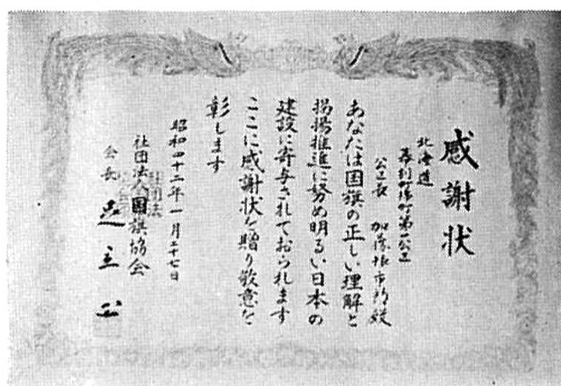 感謝状
北海道
幕別町 第一公区
公区長 加藤 市郎殿
あなたは国旗の正しい理解と
掲揚推進に努め明るい日本の
建設に寄与されておられます
ここに感謝状を贈り敬意を
彰します
昭和四十二年一月二十七日
社団法人国旗協会
会長